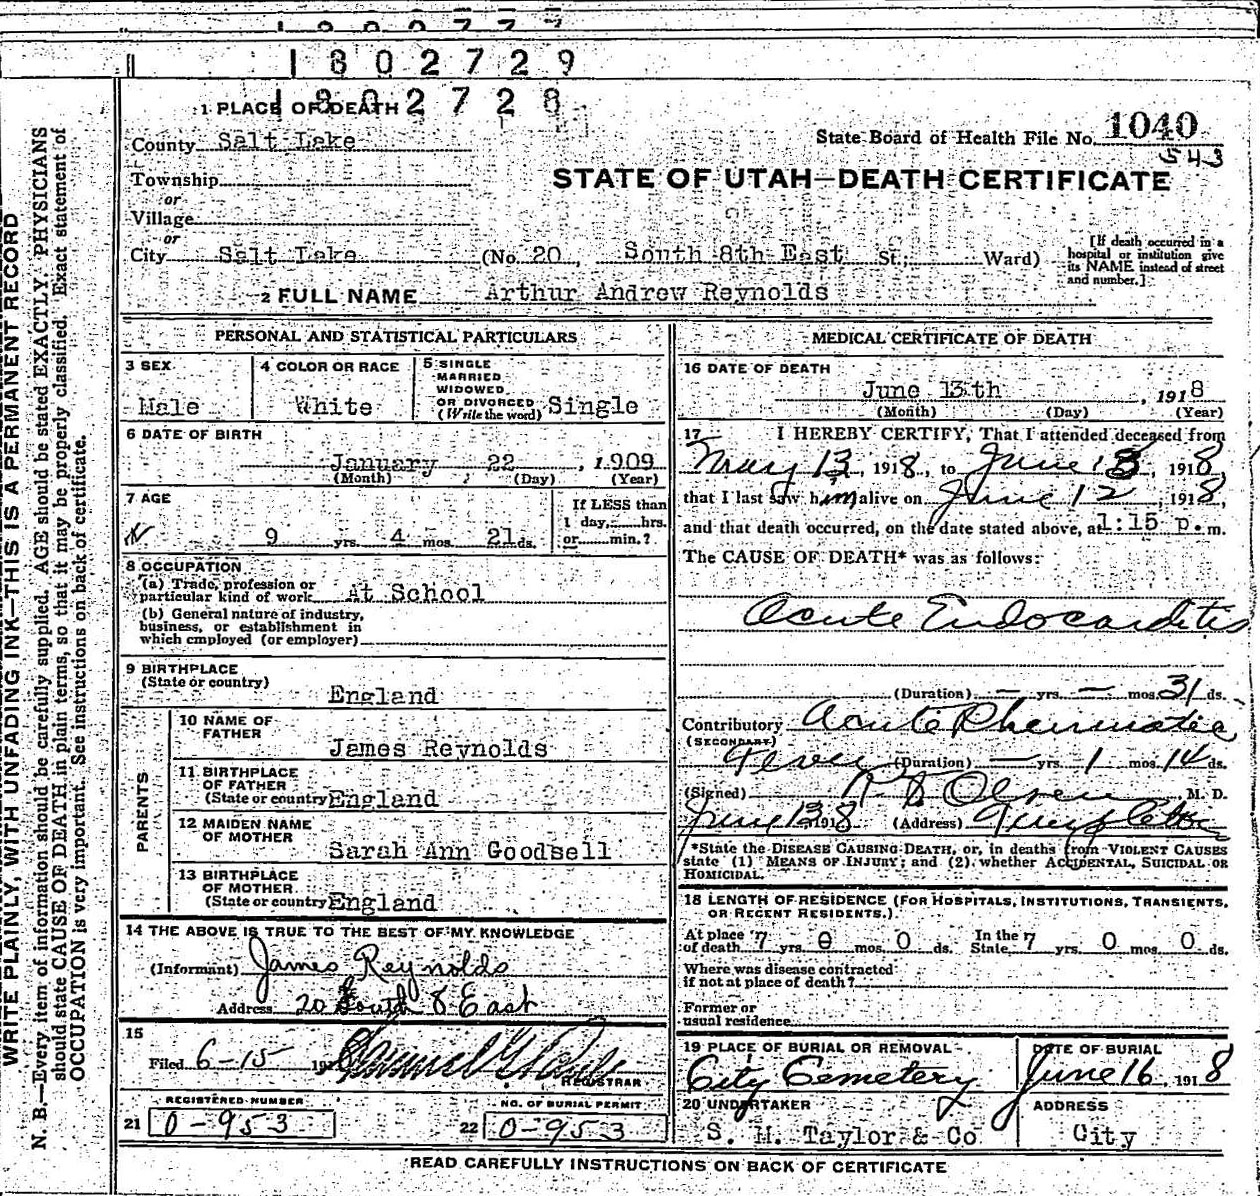 1 8 0 2 7 2 9
1 8 0 2 7 2 8
1 PLACE OF DEATH
County Salt Lake
State Board of Health File No. 1040
543
Township
or
STATE OF UTAH—DEATH CERTIFICATE
Village
or
City Salt Lake (No. 20, South 8th East St.; Ward)
[If death occurred in a hospital or institution give its NAME instead of street and number.]
2 FULL NAME Arthur Andrew Reynolds
PERSONAL AND STATISTICAL PARTICULARS
3 SEX
Male
4 COLOR OR RACE
White
5 SINGLE
MARRIED
WIDOWED
OR DIVORCED
(Write the word) Single
6 DATE OF BIRTH
January 22, 1909
(Month) (Day) (Year)
7 AGE
9 yrs. 4 mos. 21 ds.
If LESS than
1 day, hrs.
or min.?
8 OCCUPATION
(a) Trade, profession or
particular kind of work At School
(b) General nature of industry,
business, or establishment in
which employed (or employer)
9 BIRTHPLACE
(State or country)
England
PARENTS
10 NAME OF
FATHER
James Reynolds
11 BIRTHPLACE
OF FATHER
(State or country) England
12 MAIDEN NAME
OF MOTHER
Sarah Ann Goodsell
13 BIRTHPLACE
OF MOTHER
(State or country) England
14 THE ABOVE IS TRUE TO THE BEST OF MY KNOWLEDGE
(Informant) James Reynolds
Address 20 South 8 East
15
Filed 6-15 191
REGISTRAR
REGISTERED NUMBER
21 0-953
NO. OF BURIAL PERMIT
22 0-953
MEDICAL CERTIFICATE OF DEATH
16 DATE OF DEATH
June 13th, 1918
(Month) (Day) (Year)
17 I HEREBY CERTIFY, That I attended deceased from
May 13, 1918, to June 13, 1918
that I last saw him alive on June 12, 1918,
and that death occurred, on the date stated above, at 1:15 p.m.
The CAUSE OF DEATH* was as follows:
Acute Endocarditis
(Duration) — yrs. — mos. 31 ds.
Contributory Acute Rheumatic
(SECONDARY)
Fever (Duration) — yrs. 1 mos. 14 ds.
(Signed) Olsen M. D.
June 13 1918 (Address) Templeton
*State the DISEASE CAUSING DEATH, or, in deaths from VIOLENT CAUSES
state (1) MEANS OF INJURY; and (2) whether ACCIDENTAL, SUICIDAL OR
HOMICIDAL.
18 LENGTH OF RESIDENCE (FOR HOSPITALS, INSTITUTIONS, TRANSIENTS,
OR RECENT RESIDENTS.)
At place
of death 7 yrs. 0 mos. 0 ds. In the
State 7 yrs. 0 mos. 0 ds.
Where was disease contracted
if not at place of death?
Former or
usual residence
19 PLACE OF BURIAL OR REMOVAL
City Cemetery
DATE OF BURIAL
June 16, 1918
20 UNDERTAKER
S. M. Taylor & Co
ADDRESS
City
READ CAREFULLY INSTRUCTIONS ON BACK OF CERTIFICATE
WRITE PLAINLY, WITH UNFADING INK—THIS IS A PERMANENT RECORD
N. B.—Every item of information should be carefully supplied. AGE should be stated EXACTLY. PHYSICIANS
should state CAUSE OF DEATH in plain terms, so that it may be properly classified. Exact statement of
OCCUPATION is very important. See instructions on back of certificate.